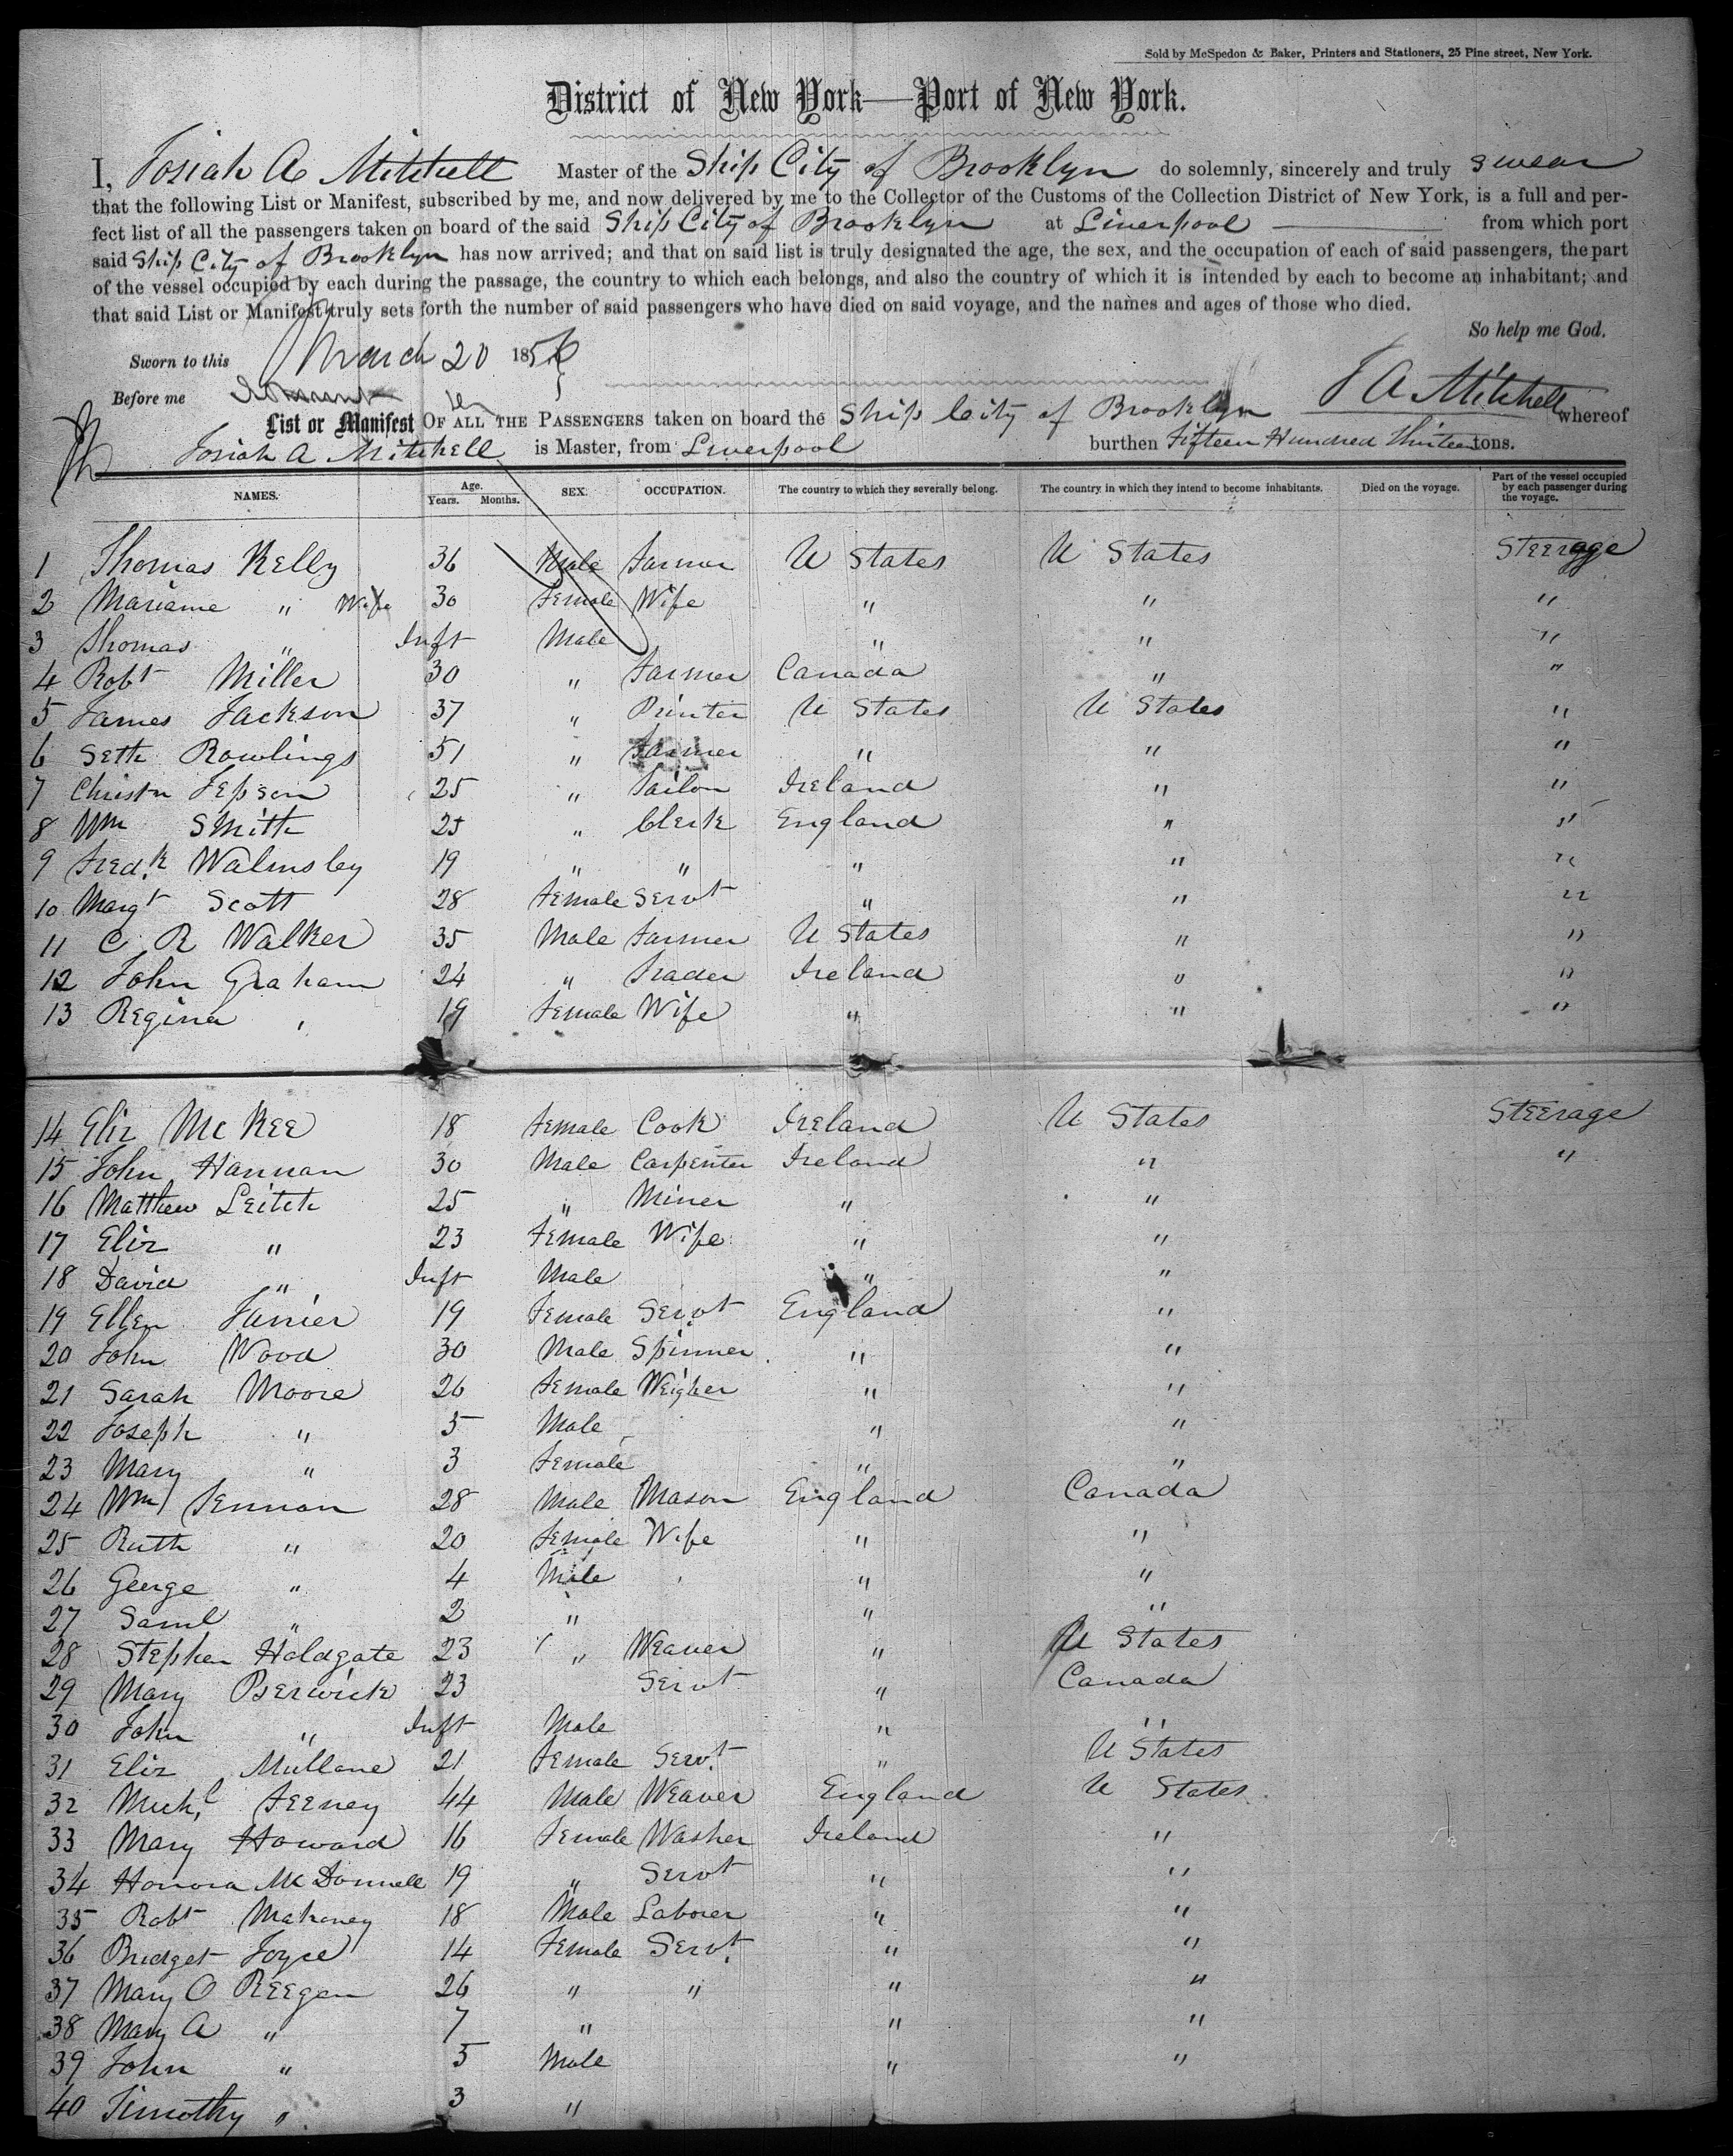 Sold by McSpedon & Baker, Printers and Stationers, 25 Pine street, New York.
District of New York—Port of New York.
I, Josiah A Mitchell Master of the Ship City of Brooklyn do solemnly, sincerely and truly swear
that the following List or Manifest, subscribed by me, and now delivered by me to the Collector of the Customs of the Collection District of New York, is a full and per-
fect list of all the passengers taken on board of the said Ship City of Brooklyn at Liverpool from which port
said Ship City of Brooklyn has now arrived; and that on said list is truly designated the age, the sex, and the occupation of each of said passengers, the part
of the vessel occupied by each during the passage, the country to which each belongs, and also the country of which it is intended by each to become an inhabitant; and
that said List or Manifest truly sets forth the number of said passengers who have died on said voyage, and the names and ages of those who died.
So help me God.
Sworn to this March 20 1856
Before me J A Mitchell
List or Manifest OF ALL THE PASSENGERS taken on board the Ship City of Brooklyn whereof
Josiah A Mitchell is Master, from Liverpool burthen Fifteen Hundred Thirteen tons.
NAMES. Age. Years. Months. SEX. OCCUPATION. The country to which they severally belong. The country in which they intend to become inhabitants. Died on the voyage. Part of the vessel occupied by each passenger during the voyage.
1 Thomas Kelly 36 Male Farmer U States U States Steerage
2 Mariane " Wife 30 Female Wife " " "
3 Thomas " Inft Male " " "
4 Robt Miller 30 " Farmer Canada " "
5 James Jackson 37 " Printer U States U States "
6 Seth Rowlings 51 " Farmer " " "
7 Christr Jepson 25 " Tailor Ireland " "
8 Wm Smith 25 " Clerk England " "
9 Fredk Walmsley 19 " " " " "
10 Margt Scott 28 Female Servt " " "
11 C R Walker 35 Male Farmer U States " "
12 John Graham 24 " Trader Ireland " "
13 Regina " 19 Female Wife " " "
14 Eliz McKee 18 Female Cook Ireland U States Steerage
15 John Hannan 30 Male Carpenter Ireland " "
16 Matthew Leitch 25 " Miner " "
17 Eliz " 23 Female Wife " "
18 David " Inft Male " "
19 Ellen 19 Female Servt England "
20 John Wood 30 Male Spinner " "
21 Sarah Moore 26 Female Weigher " "
22 Joseph " 5 Male " "
23 Mary " 3 Female " "
24 Wm 28 Male Mason England Canada
25 Ruth " 20 Female Wife " "
26 George " 4 Male " "
27 Saml " 2 " " "
28 Stephen Holdgate 23 " Weaver " U States
29 Mary Berwick 23 Servt " Canada
30 John " Inft Male " "
31 Eliz Mullane 21 Female Servt " U States
32 Michl Feeney 44 Male Weaver England U States
33 Mary Howard 16 Female Washer Ireland "
34 Honora McDonnell 19 " Servt " "
35 Robt Mahoney 18 Male Laborer " "
36 Bridget Joyce 14 Female Servt " "
37 Mary O Reegan 26 " " " "
38 Mary A " 7 " " "
39 John " 5 Male " "
40 Timothy " 3 "